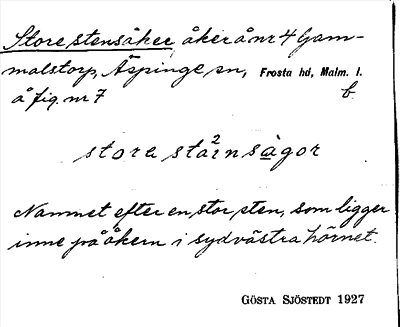 Store stensåker åker å nr 4 Gam-
malstorp, Äspinge sn, Frosta hd, Malm. l.
å fig. nr 7 b.
stora stainsågor
Namnet efter en stor sten, som ligger
inne på åkern i sydvästra hörnet.
GÖSTA SJÖSTEDT 1927